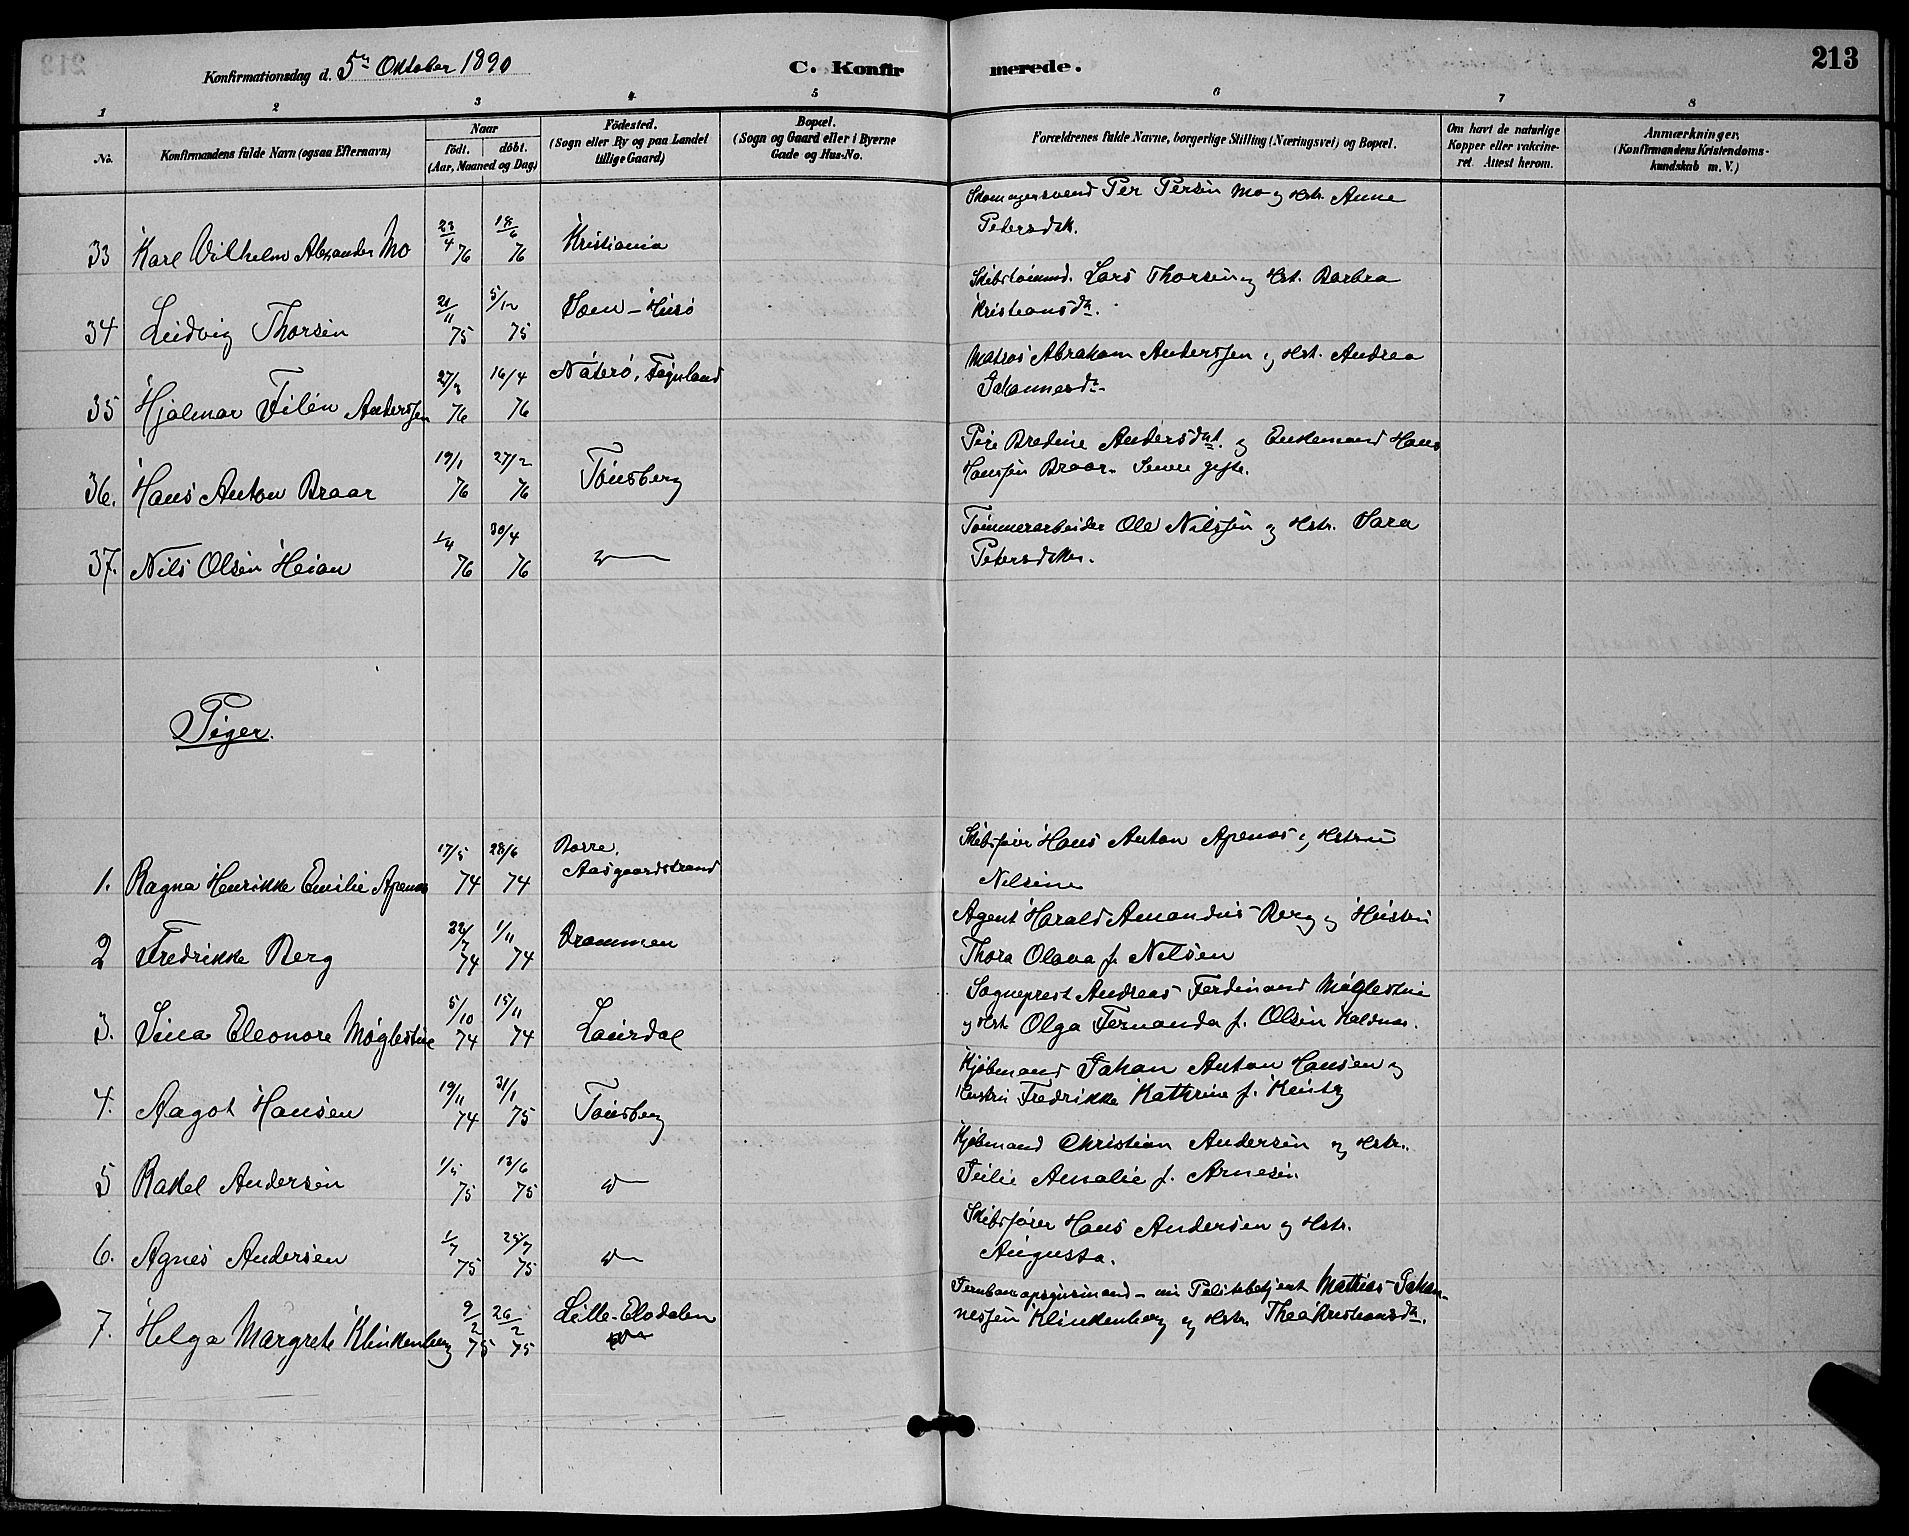 Konfirmationsdag d. 5te Oktober 1890 C. Konfir merede. 213
1 2 3 4 5 6 7 8
No. Konfirmandens fulde Navn (ogsaa Efternavn) Naar født. døbt. (Aar, Maaned og Dag) Fødested. (Sogn eller By og paa Landet tillige Gaard) Bopæl. (Sogn og Gaard eller i Byerne Gade og Hus-No. Forældrenes fulde Navne, borgerlige Stilling (Næringsvei) og Bopæl. Om havt de naturlige Kopper eller vaccineret. Attest herom. Anmærkninger. (Konfirmandens Kristendomskundskab m. V.)
Skomagersvend Per Persen Mo og Hstr. Anne
33 Karl Vilhelm Alexander Mo 23/4 76 18/6 76 Kristiania Petersdtr.
Skibstømmd. Lars Thorsen og Hst. Barbra
34 Ludvig Thorsen 21/11 75 5/12 75 Soen - Husø Kristiansdtr.
Matros Abraham Anderssen og Hst. Andrea
35 Hjalmar Filén Anderssen 27/3 76 16/4 76 Nøterø, Føynland Johannesdtr.
Pige Bredine Andersdat. og Enkemand Hans
36. Hans Anton Braar 19/1 76 27/2 76 Tønsberg Hanssen Braar. Senere gifte.
Tømmerarbeider Ole Nilssen og Hstr. Sara
37. Nils Olsen Heian 1/4 76 30/4 76 Petersdtter.
Piger.
Skibsfører Hans Anton Apenæs og Hstru
1. Ragna Henrikke Emilie Apenæs 17/5 74 28/6 74 Borre, Aasgaardstrand Nilsine
Agent Harald Amandus Berg og Hustru
2 Fredrikke Berg 22/7 74 1/11 74 Drammen Thora Olava f. Nilsen
Sogneprest Andreas Ferdinand Møglestue
3. Sina Eleonore Møglestue 5/10 74 15/11 74 Laurdal og Hst. Olga Fernanda f. Olsen Kaldnæs.
Kjøbmand Johan Anton Hansen og
4. Aagot Hansen 19/11 74 31/1 75 Tønsberg Hustru Fredrikke Kathrine f. Keitz
Kjøbmand Christian Andersen og Hstr.
5 Rakel Andersen 1/5 75 13/6 75 Julie Amalie f. Arnesen.
Skibsfører Hans Andersen og Hstr.
6. Agnes Andersen 1/7 75 25/7 75 Augusta.
Jernbaneopsynsmand - nu Politibetjent Mathias Johan-
7. Helga Margrete Klinkenberg 9/2 75 26/2 75 Lille-Elvdalen nessen Klinkenberg og Hstr. Thea Kristiansdtr.